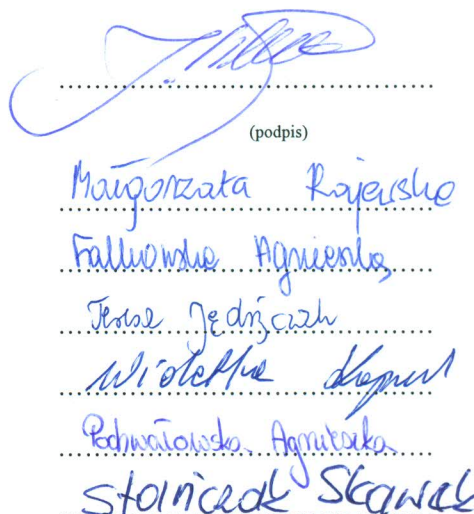 (podpis)
Małgorzata Rajewska
Falkowska Agnieszka
Teresa Jędrzczak
Wioletta
Podwałowska Agnieszka
Stańczak